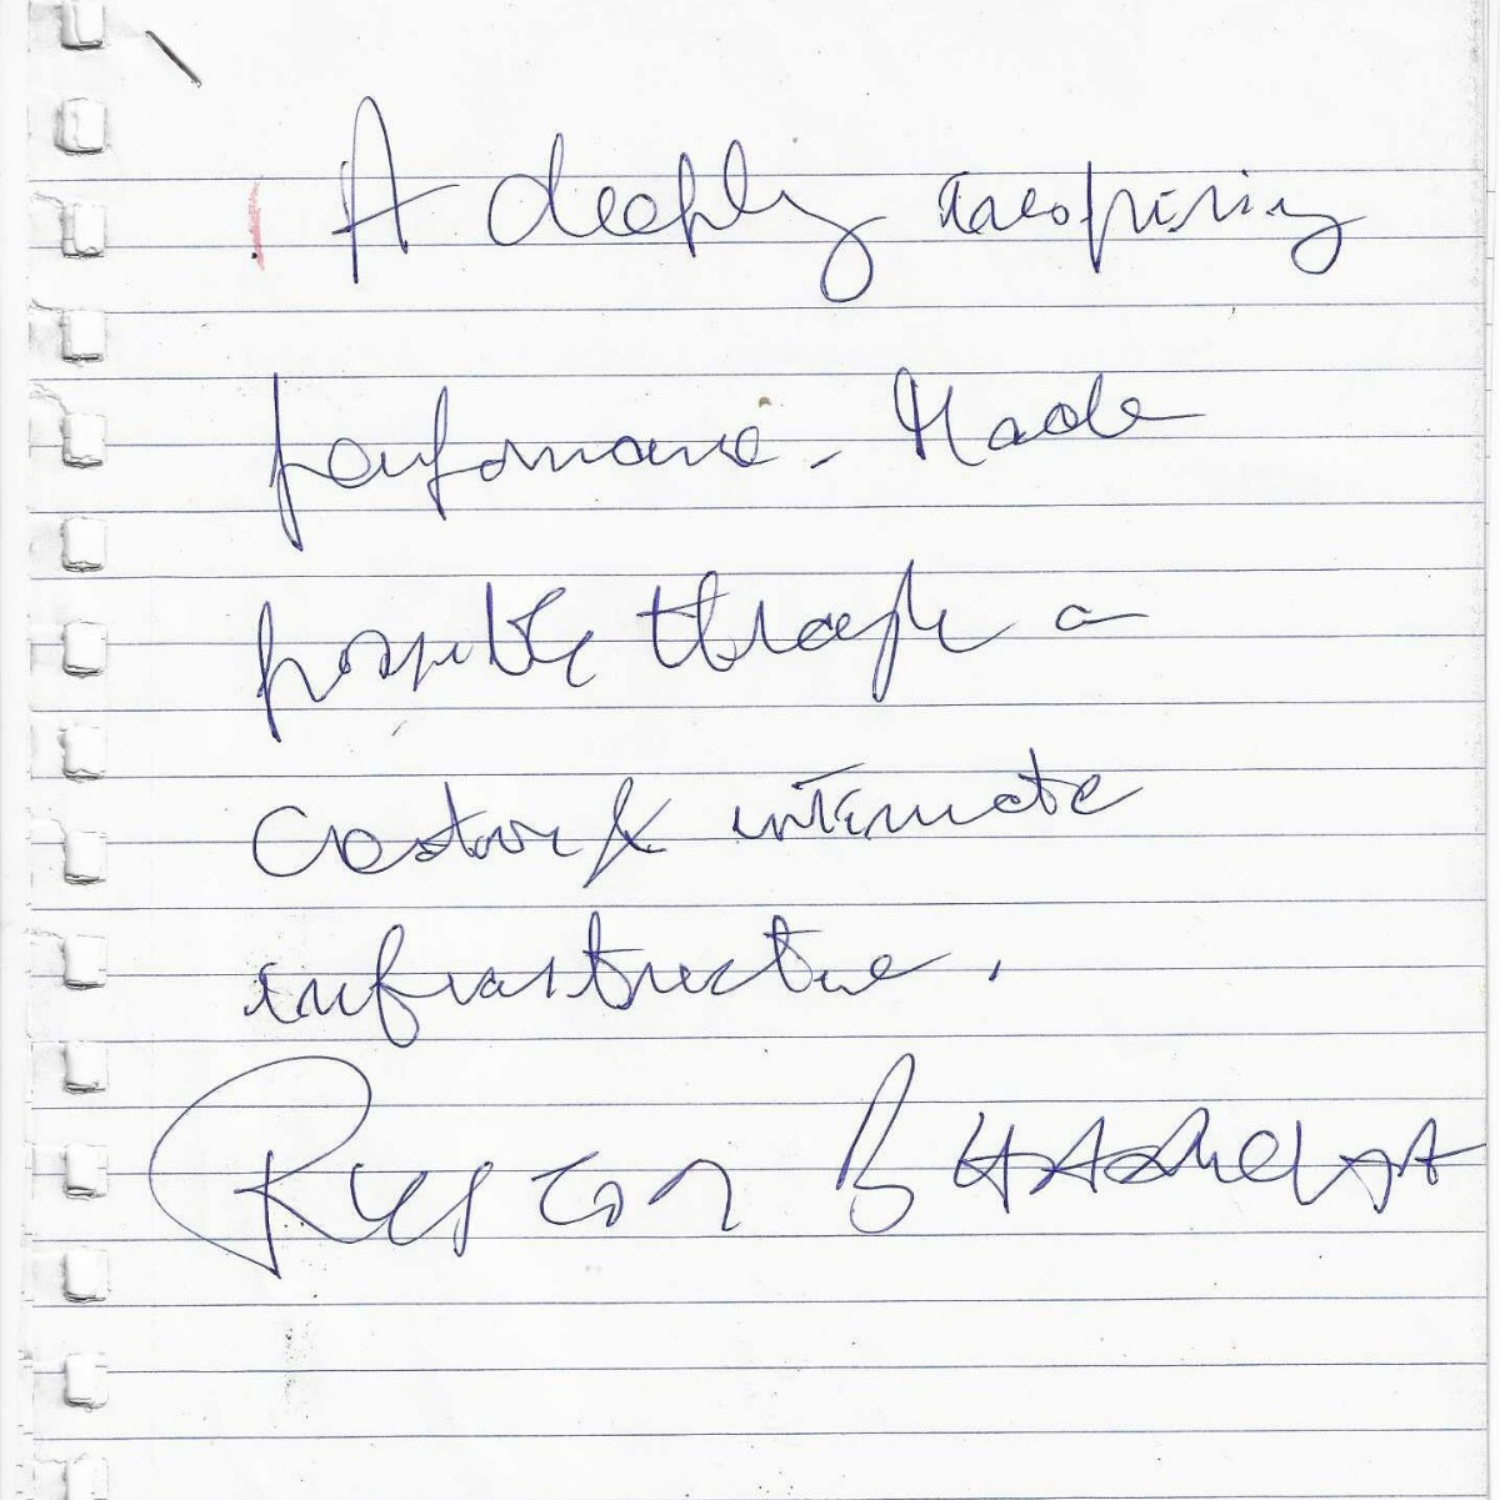 A deeply inspiring
performance. Made
possible through a
creative & intimate
infrastructure.
Rustom Bharucha